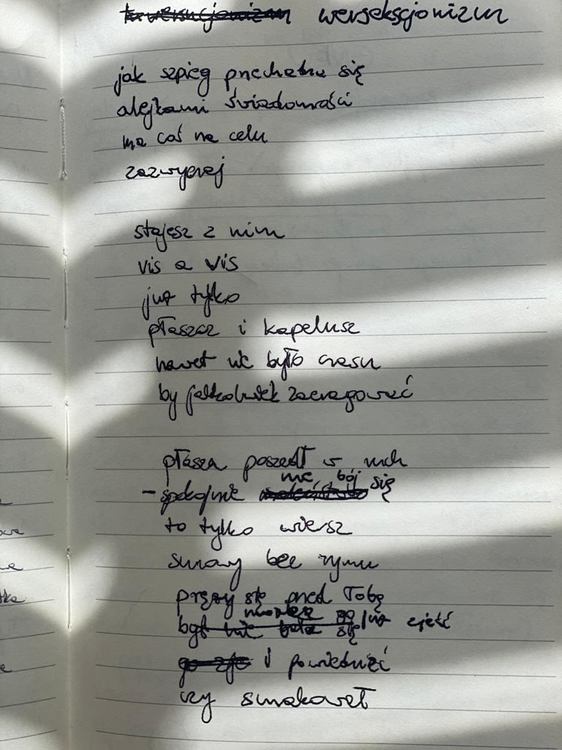 wersekscjonizm
jak szpieg przechadza się
alejkami świadomości
ma coś na celu
zazwyczaj
stajesz z nim
vis a vis
już tylko
płaszcz i kapelusz
nawet nie było czasu
by jakkolwiek zareagować
płaszcz poszedł w ruch
- spokojnie nie bój się
to tylko wiersz
surowy bez rymu
pręży się przed Tobą
możesz go już zjeść
i powiedzieć
czy smakował